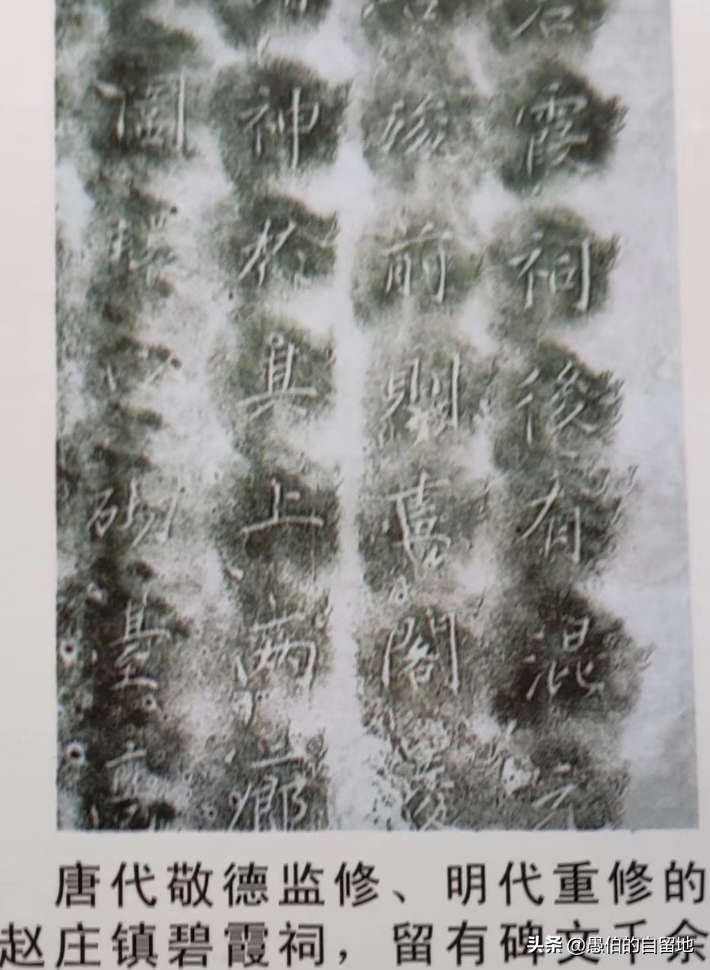 霞祠後有混元
前則舊閣
神於其上兩廊
砌臺
唐代敬德监修、明代重修的
赵庄镇碧霞祠，留有碑文千余
头条 @愚伯的自留地